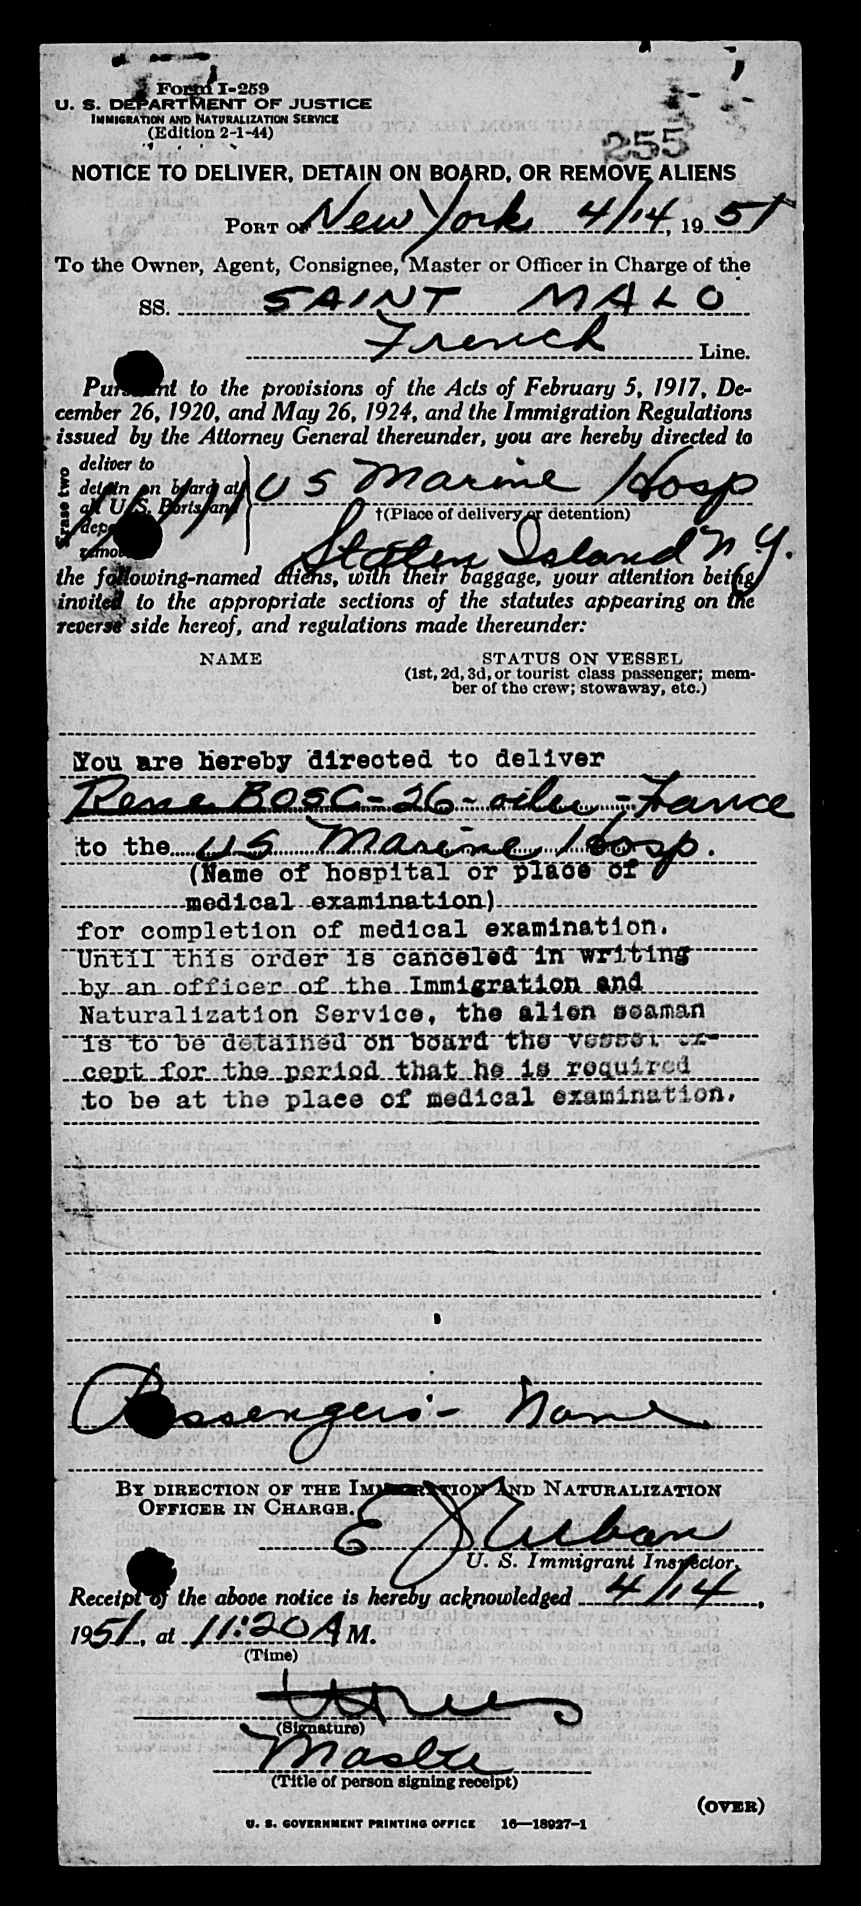 Form I-259
U. S. DEPARTMENT OF JUSTICE
IMMIGRATION AND NATURALIZATION SERVICE
(Edition 2-1-44)
255
NOTICE TO DELIVER, DETAIN ON BOARD, OR REMOVE ALIENS
PORT OF New York 4/14, 1951
To the Owner, Agent, Consignee, Master or Officer in Charge of the
SS. SAINT MALO
French Line.
Pursuant to the provisions of the Acts of February 5, 1917, De-
cember 26, 1920, and May 26, 1924, and the Immigration Regulations
issued by the Attorney General thereunder, you are hereby directed to
Erase two
deliver to
detain on board at
all U. S. Ports and
US Marine Hosp
†(Place of delivery or detention)
Staten Island N.Y.
the following-named aliens, with their baggage, your attention being
invited to the appropriate sections of the statutes appearing on the
reverse side hereof, and regulations made thereunder:
NAME STATUS ON VESSEL
(1st, 2d, 3d, or tourist class passenger; mem-
ber of the crew; stowaway, etc.)
You are hereby directed to deliver
Rene BOSC - 26 - oiler - France
to the US Marine Hosp.
(Name of hospital or place of
medical examination)
for completion of medical examination.
Until this order is canceled in writing
by an officer of the Immigration and
Naturalization Service, the alien seaman
is to be detained on board the vessel ex-
cept for the period that he is required
to be at the place of medical examination.
Passengers - None
BY DIRECTION OF THE IMMIGRATION AND NATURALIZATION
OFFICER IN CHARGE.
E J Urban
U. S. Immigrant Inspector.
Receipt of the above notice is hereby acknowledged 4/14,
1951, at 11:20 A M.
(Time)
(Signature)
Master
(Title of person signing receipt)
(OVER)
U. S. GOVERNMENT PRINTING OFFICE 16—18927-1